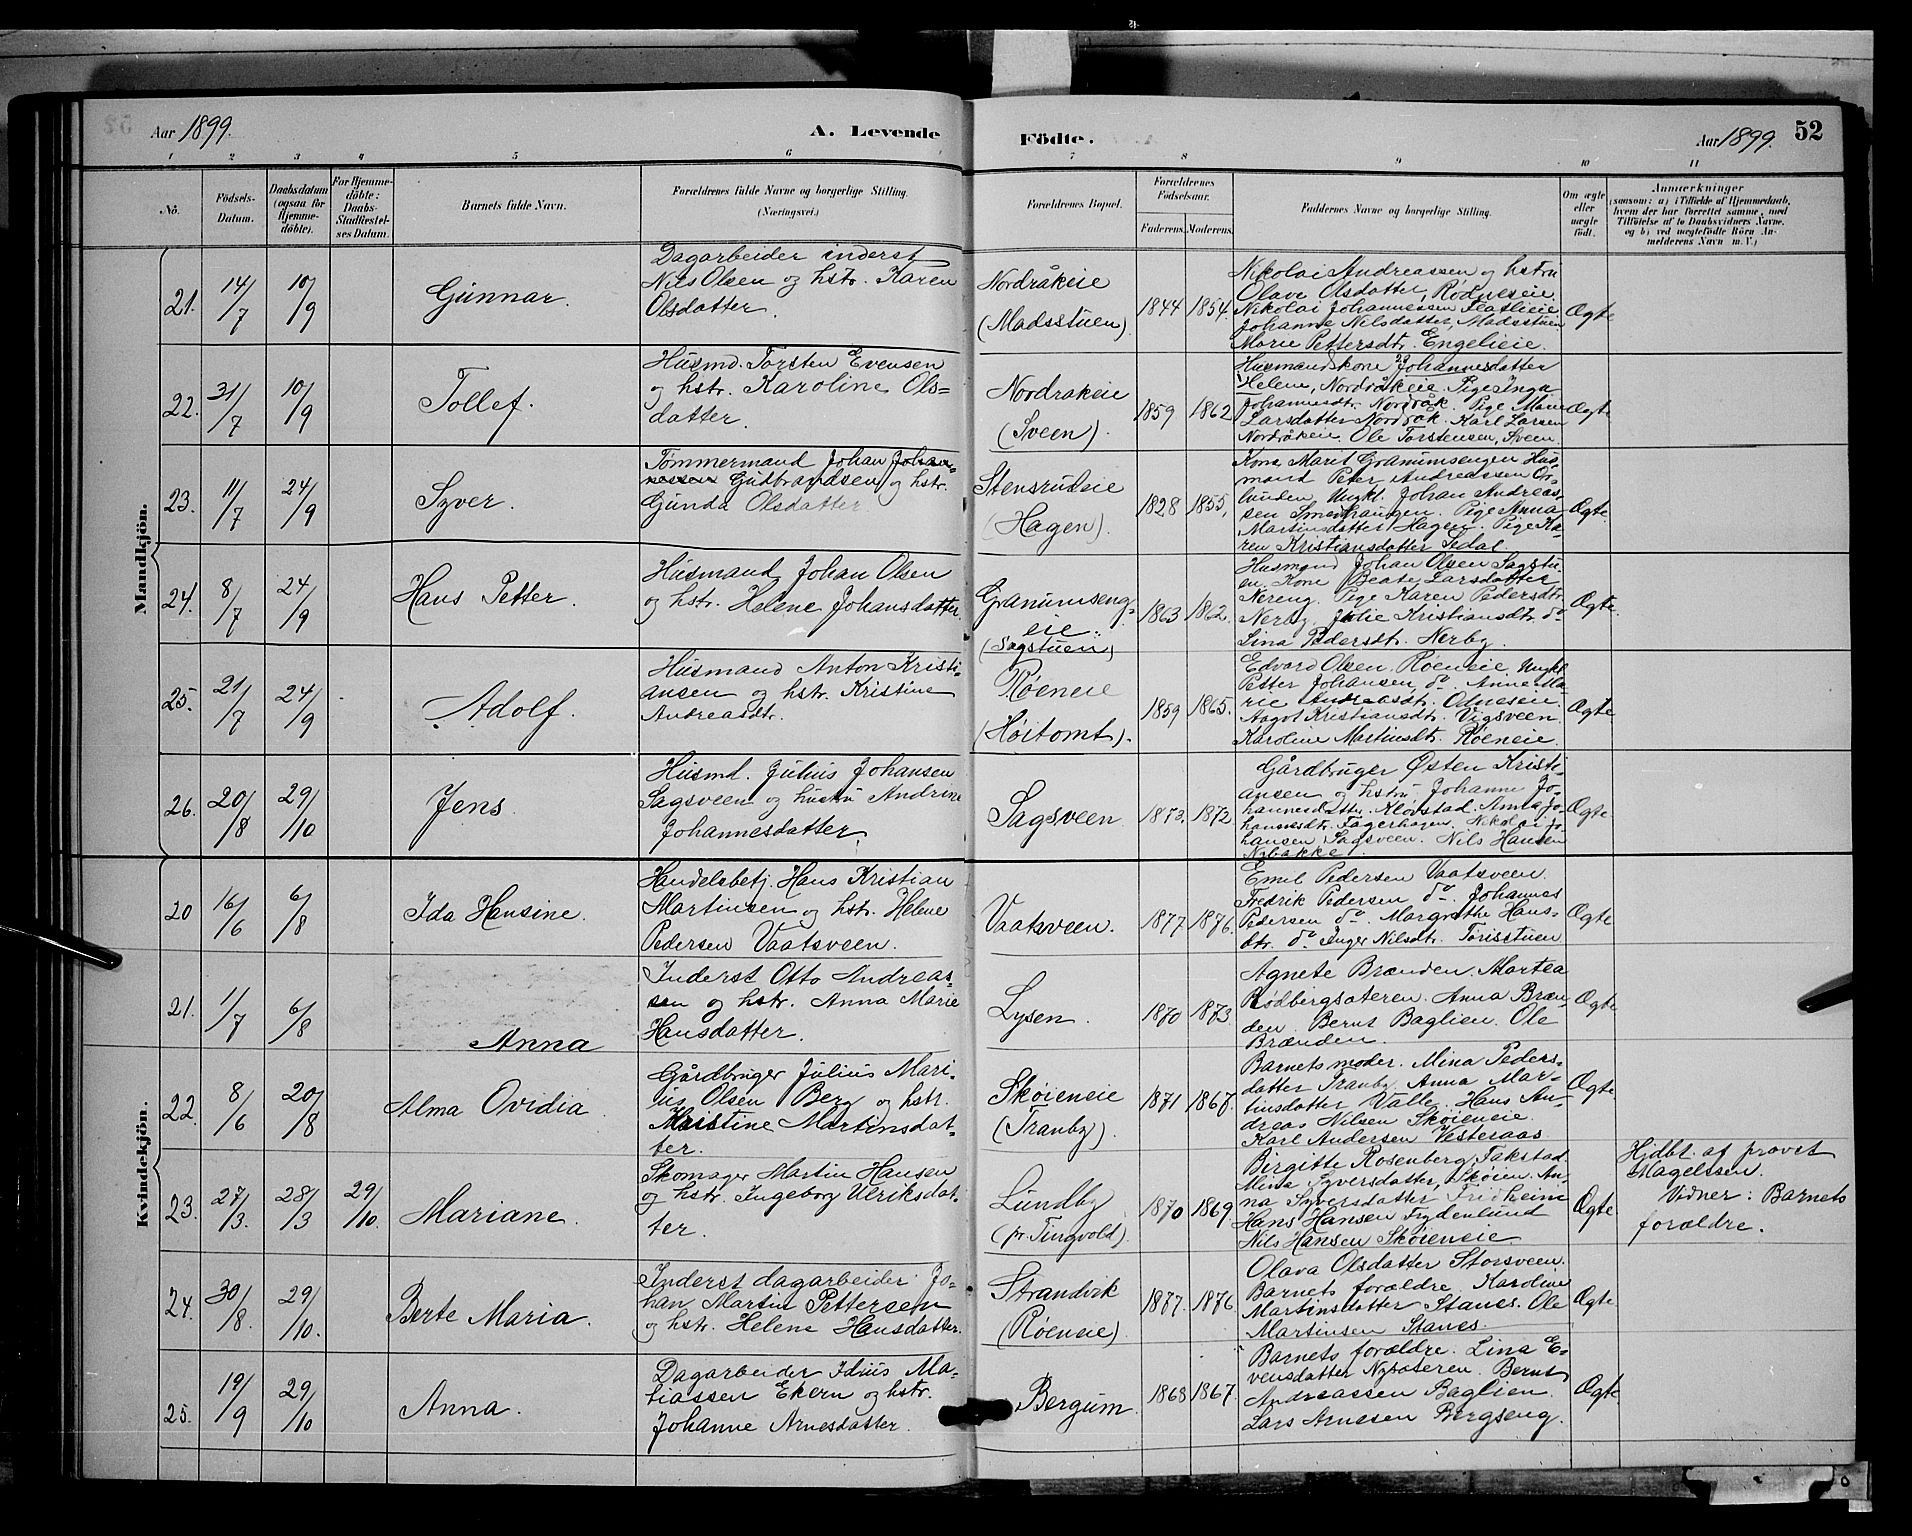 Aar 1899.
A. Levende
Födte.
Aar 1899.
52
1 2 3 4 5 6 7 8 9 10 11
No.
Födsels-
Datum.
Daabsdatum
(ogsaa for
Hjemme-
döbte).
For Hjemme-
döbte:
Daabs-
Stadfæstel-
ses Datum.
Barnets fulde Navn.
Forældrenes fulde Navne og borgerlige Stilling.
(Næringsvei.)
Forældrenes Bopæl.
Forældrenes
Födselsaar.
Faderens. Moderens.
Faddernes Navne og borgerlige Stilling.
Om ægte
eller
uægte
födt.
Anmærkninger
(saasom: a) i Tilfælde af Hjemmedaab,
hvem der har forrettet samme, med
Tilföielse af to Daabsvidners Navne,
og b) ved uægtefödte Börn An-
melderens Navn m. V.)
Mandkjön.
21. 14/7 10/9
Gunnar.
Dagarbeider inderst
Nils Olsen og hstr. Karen
Olsdatter.
Nordråkeie
(Madsstuen)
1844 1854.
Nikolai Andreassen og hstru
Olave Olsdatter, Rødneseie.
Nikolai Johannessen Flatlieie
Johanne Nilsdatter, Madsstuen
Marie Pettersdtr. Engelieie.
Ægte
22. 31/7 10/9
Tollef.
Husmd. Torsten Evensen
og hstr. Karoline Ols-
datter.
Nordrakeie
(Sveen).
1859 1862
Husmandskone Johannesdatter
Helene, Nordråkeie. Pige Inga
Johannesdtr. Nordråk. Pige Marie
Larsdatter Nordråk. Karl Larsen
Nordråkeie. Ole Torstensen, Sveen.
Ægte
23. 11/7 24/9
Syver.
Tømmermand Johan Johan-
nessen Gudbrandsen og hstr.
Gunda Olsdatter
Stensrudeie
(Hagen).
1828 1855,
Kone Marit Granumsengen Hus-
mand Peter Andreassen
Ungkl. Johan Andreas-
sen Smedhaugen. Pige Anna
Martinsdatter Hagen. Pige Ka-
ren Kristiansdatter Sedal.
Ægte.
24. 8/7 24/9
Hans Petter.
Husmand Johan Olsen
og hstr. Helene Johansdatter
Granumseng-
eie.
(Sagstuen)
1863 1862.
Husmand Johan Olsen Sagstu-
en. Kone Beate Larsdatter
Nereng. Pige Karen Pedersdtr.
Nerby. Julie Kristiansdtr. do
Lina Pedersdtr. Nerby.
Ægte.
25. 21/7 24/9
Adolf.
Husmand Anton Kristi-
ansen og hstr. Kristine
Andreasdtr.
Røeneie
(Høitomt).
1859 1865.
Edvard Olsen, Røeneie Ungkl
Petter Johansen, do. Anne Ma-
rie Andreasdtr. Odneseie.
Aagot Kristiansdtr. Vigsveen
Karoline Martinsdtr. Røeneie.
Ægte
26. 20/8 29/10
Jens
Husmd. Julius Johansen
Sagsveen og hustru Andrine
Johannesdatter
Sagsveen
1873. 1872.
Gårdbruger Østen Kristi-
ansen og hstru Johanne Jo-
hannesdatter Klovstad. Anna Jo-
hannesdtr. Fagerhagen. Nikolai Jo-
hansen Sagsveen. Nils Hansen
Nybakke.
Ægte
Kvindekjön.
20 16/6 6/8
Ida Hansine.
Handelsbetj. Hans Kristian
Martinsen og hstr. Helene
Pedersen Vaatsveen.
Vaatsveen.
1877 1876.
Emil Pedersen Vaatsveen
Fredrik Pedersen do. Johannes
Pedersen do. Margrethe Hans-
dtr. do Inger Nilsdtr. Toristuen
Ægte
21. 1/7 6/8
Anna
Inderst Otto Andreas-
sen og hstr. Anna Marie
Hansdatter.
Lysen.
1870 1873.
Agnete Brænden. Martea
Rødbergsæteren. Anna Bræn-
den. Bernt Baglien. Ole
Brænden.
Ægte
22. 8/6 20/8
Alma Ovidia
Gårdbruger Julius Mari-
us Olsen Berg og hstr.
Kristine Martinsdat-
ter.
Skøieneie
(Tranby).
1871 1867.
Barnets moder. Mina Peders-
datter Tranby. Anna Mar-
tinsdatter Valle. Hans An-
dreas Nilsen Skøieneie.
Karl Andersen Vesteraas
Ægte
23. 27/3. 28/3 29/10.
Mariane.
Skomager Martin Hansen
og hstr. Ingeborg Ulriksdat-
ter.
Lundby
(pr. Tingvold).
1870 1869.
Birgitte Rosenberg, Fakstad
Mina Syversdatter, Skøien. An-
na Syversdatter Fridheim
Hans Hansen Frydenlund
Nils Hansen Skøieneie.
Ægte
Hjdbt. af provst
Magelssen.
Vidner: Barnets
forældre.
24. 30/8. 29/10.
Berte Maria.
Inderst dagarbeider Jo-
han Martin Pettersen
og hstr. Helene Hansdatter.
Strandvik
(Røeneie)
1877. 1876.
Olava Olsdatter Storsveen.
Barnets forældre. Karoline
Martinsdatter Stanes. Ole
Martinsen Stanes.
Ægte
25. 19/9 29/10
Anna.
Dagarbeider Idius Ma-
tiassen Ekern og hstr.
Johanne Arnesdatter.
Bergum.
1868 1867.
Barnets forældre. Lina E-
vensdatter Nysæteren. Bernt
Andreassen Baglien.
Lars Arnesen Bergseng.
Ægte.